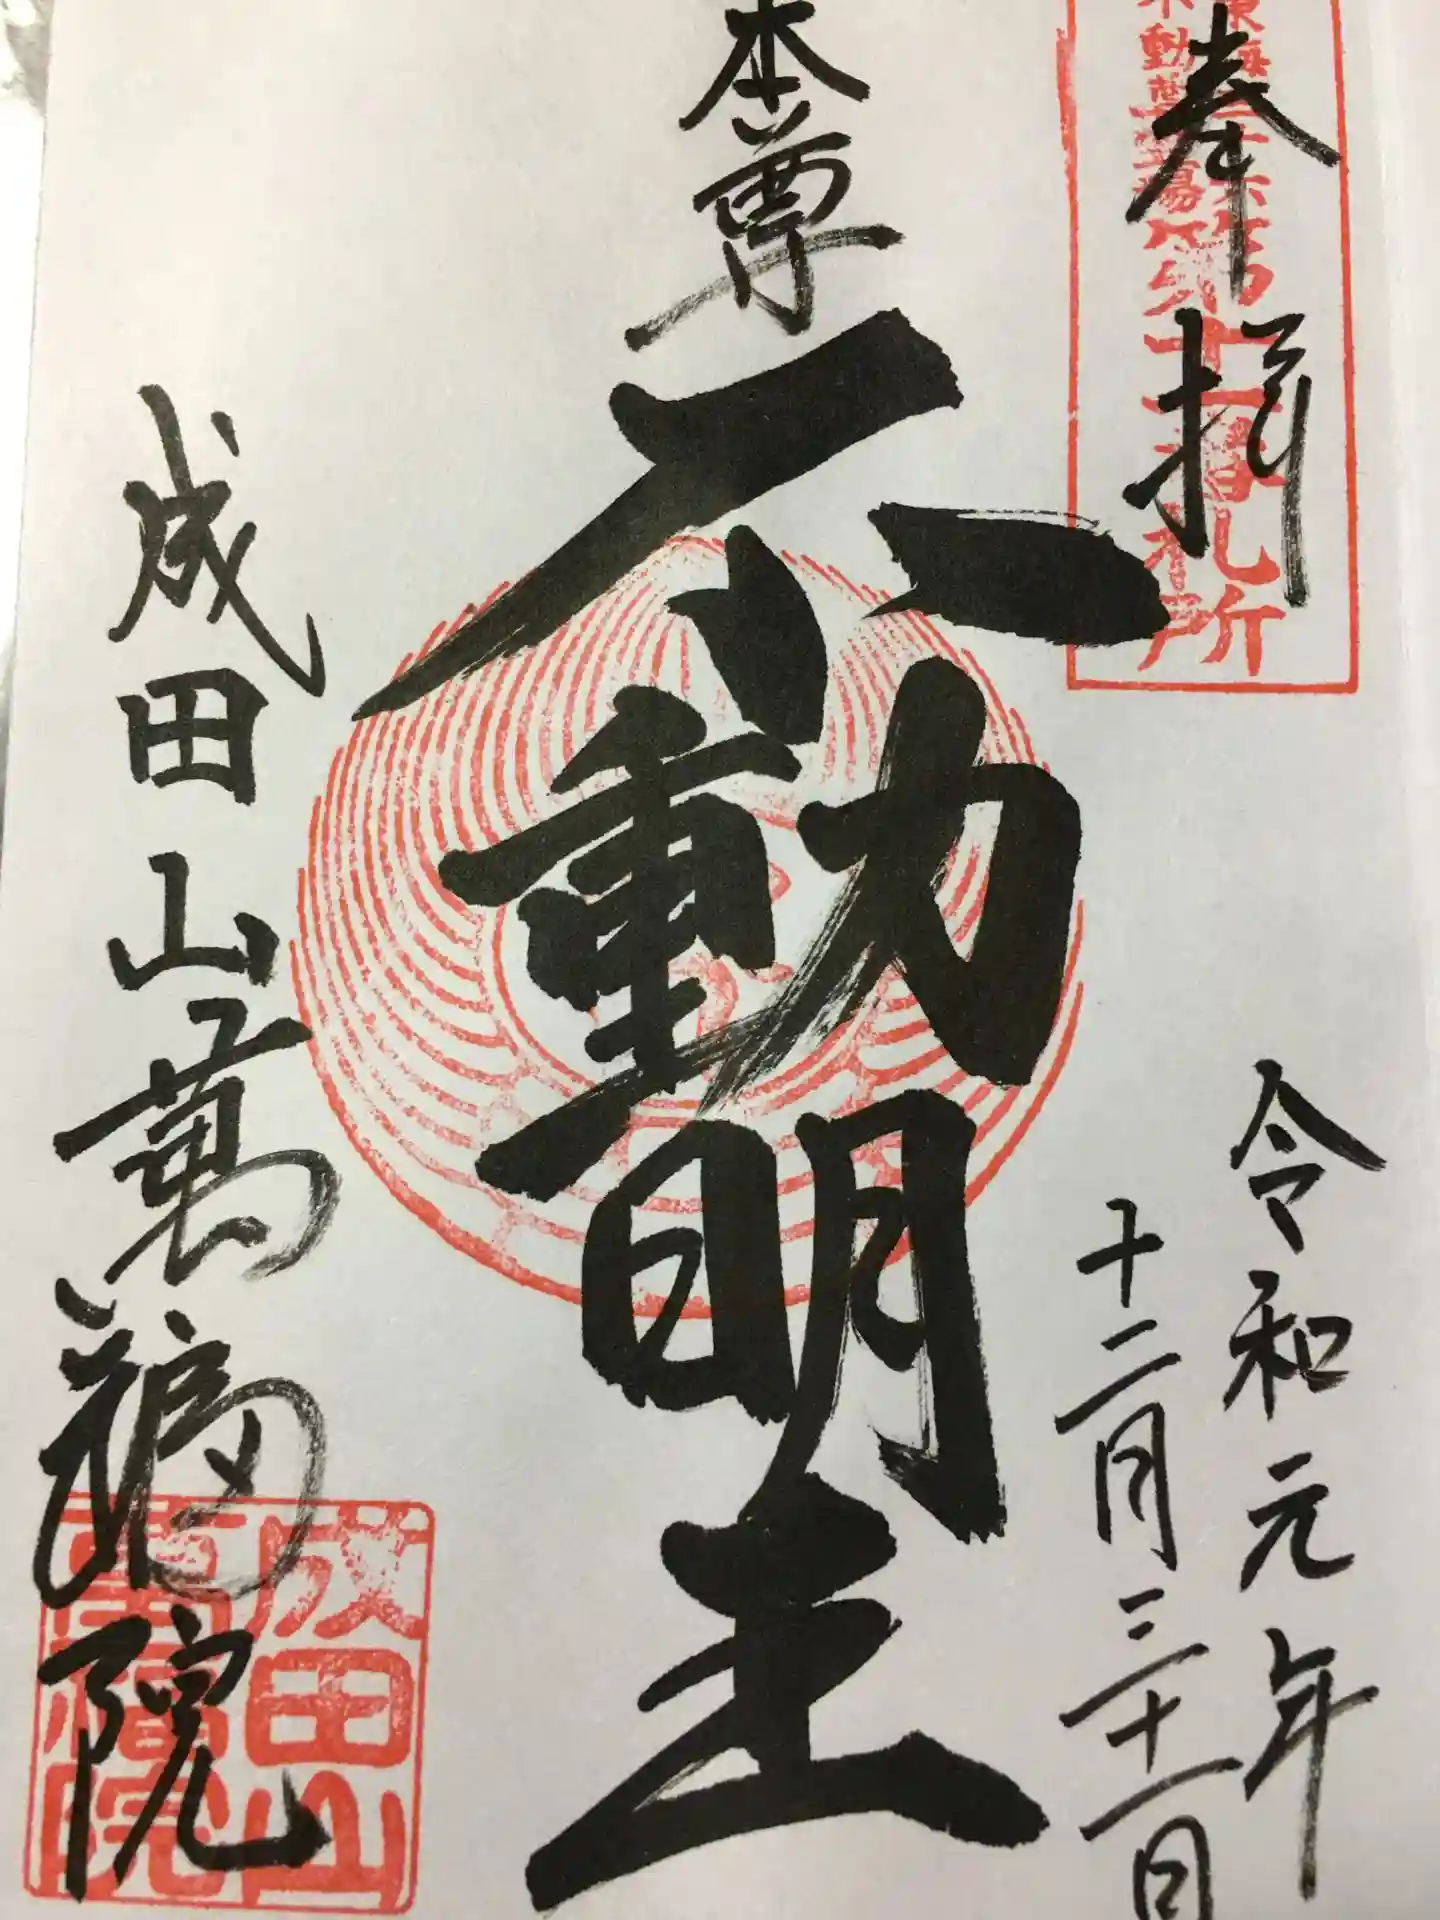 奉拝
東海三十六
不動尊霊場
第十一番札所
令和元年
十二月三十一日
本尊
不動明王
成田山萬福院
成田山
萬福院